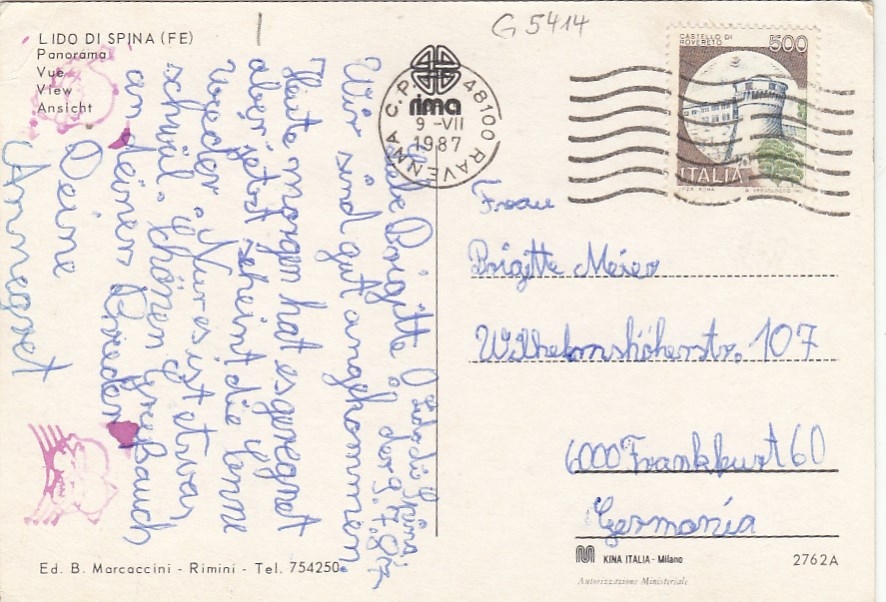 G 5414
LIDO DI SPINA (FE)
Panorama
Vue
View
Ansicht
CASTELLO DI
ROVERETO
500
ITALIA
48100 RAVENNA C.P.
rima
9 -VII
1987
Lido di Spina,
Liebe Brigitte! den 9.7.87
Wir sind gut angekommen.
Heute morgen hat es geregnet
aber jetzt scheint die Sonne
wieder. Nur es ist etwas
schwül. Schönen Gruß auch
an deinen
Deine
Annegret
Frau
Brigitte Meier
Wilhelmshöherstr. 107
6000 Frankfurt 60
Germania
KINA ITALIA - Milano
2762A
Autorizzazione Ministeriale
Ed. B. Marcaccini - Rimini - Tel. 754250